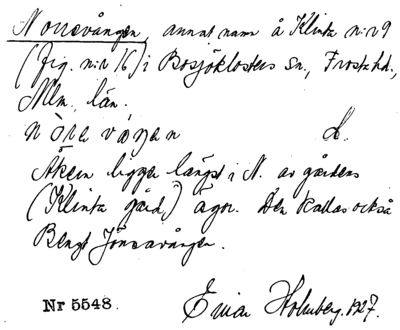 Norrevången, annat namn å Klinta n:r 9
(fig. n:r 16) i Bosjöklosters sn., Frosta hd.,
Mlm. län.
nòrevàŋen L.
Åkern ligger längst i N. av gårdens
(Klinta gård,) ägor. Den kallas också
Bengt Jönsavången.
Nr 5548. Einar Holmberg. 1927.